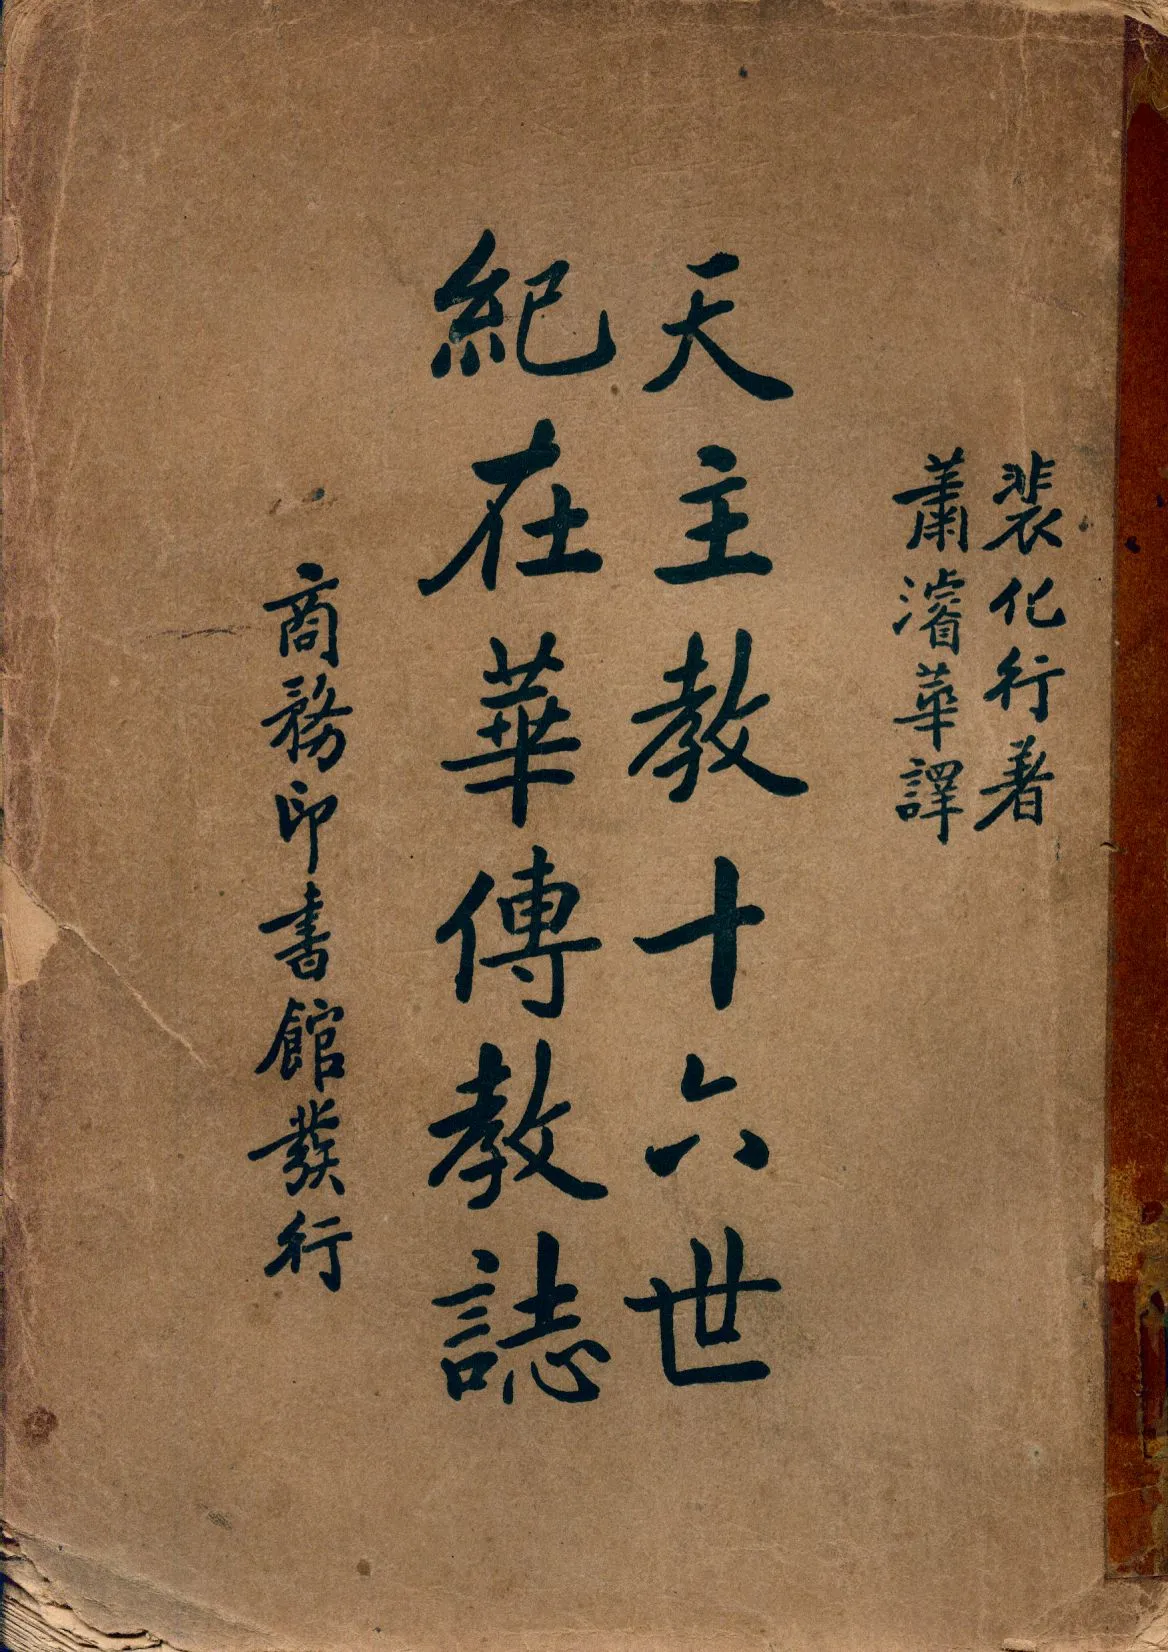 裴化行著
蕭濬華譯
天主教十六世
紀在華傳教誌
商務印書館發行